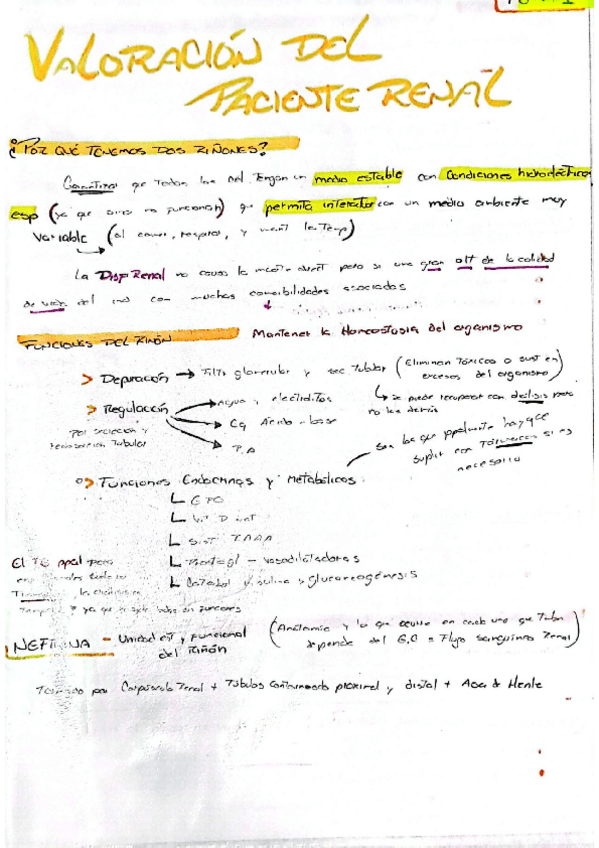 VALORACIÓN DEL
PACIENTE RENAL
¿POR QUÉ TENEMOS DOS RIÑONES?
Garantizar que todas las cel tengan un medio estable con condiciones hidroeléctricas
esp (ya que sino no funcionan) que permita interactuar con un medio ambiente muy
variable (al comer, respirar, y la temp)
La Disf Renal no causa la muerte pero si una gran alt de la calidad
de vida del ind con muchas comorbilidades asociadas
FUNCIONES DEL RIÑÓN Mantener la Homeostasia del organismo
> Depuración → Filtr glomerular y sec Tubular (Eliminan Tóxicos o sust en
excesos del organismo)
> Regulación → agua y electrolitos
↳ se puede recuperar con diálisis pero
no las demás
por secreción y
reabsorción Tubular
→ Eq Ácido-base
→ P.A
son las que ppalmente hay que
suplir con fármacos si es
necesario
> Funciones Endocrinas y Metabólicas
EPO
Vit D
Sist RAAA
Prostagl - vasodilatadoras
Catabol insulina y glucogénesis
El TG ppal para
ya que si este todas sus funciones
NEFRONA - Unidad est y funcional
del Riñón
(Anatomía y lo que ocurre en cada uno que
depende del G.C = Flujo sanguíneo Renal)
Formado por Corpúsculo Renal + Túbulos contorneado proximal y distal + Asa de Henle